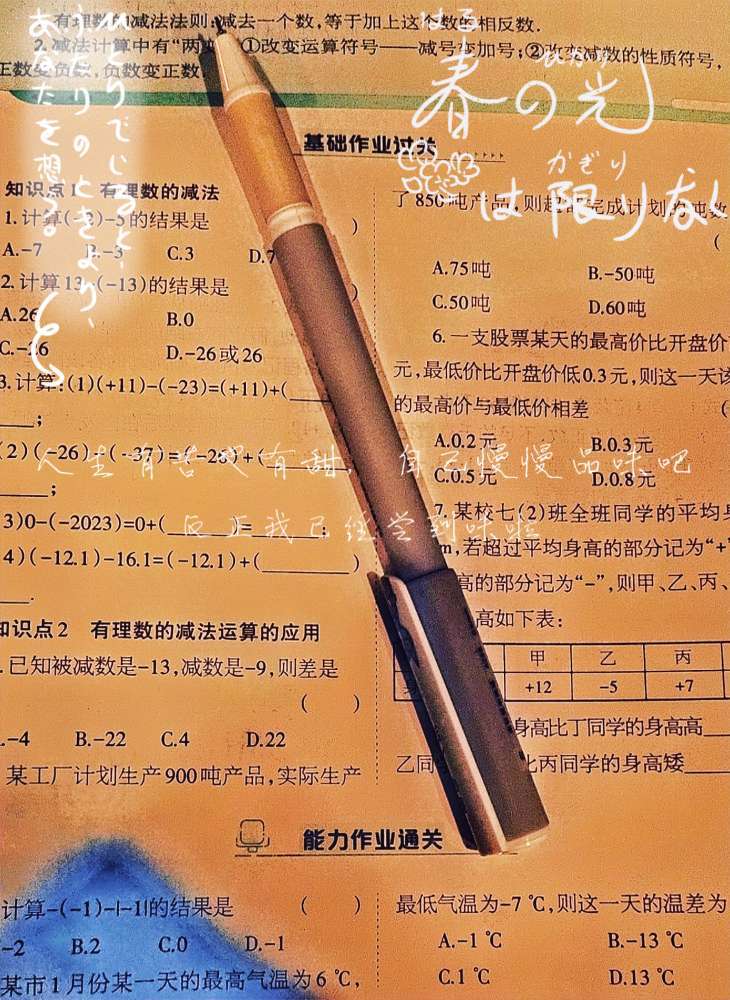 有理数的减法法则:减去一个数,等于加上这个数的相反数.
2.减法计算中有“两 ①改变运算符号——减号变加号;②改变减数的性质符号,
正数变负数,负数变正数.
ひとりでいると、
ふたりのときより、
あなたを想る
はる
春の光
かぎり
は限りなく
基础作业过关
知识点1 有理数的减法
1.计算(-2)-5的结果是
( )
A.-7 B.-3 C.3 D.7
2.计算13-(-13)的结果是
A.26 B.0
C.-26 D.-26或26
3.计算:(1)(+11)-(-23)=(+11)+(____
____;
(2)(-26)-(-37)=(-26)+(
____;
3)0-(-2023)=0+(______)=______;
4)(-12.1)-16.1=(-12.1)+(______)
____.
人生有苦也有甜, 自己慢慢品味吧
反正我已经尝到味啦
知识点2 有理数的减法运算的应用
.已知被减数是-13,减数是-9,则差是
( )
.-4 B.-22 C.4 D.22
某工厂计划生产900吨产品,实际生产
了850吨产品,则超额完成计划的吨数
(
A.75吨 B.-50吨
C.50吨 D.60吨
6.一支股票某天的最高价比开盘价
元,最低价比开盘价低0.3元,则这一天该
的最高价与最低价相差 (
A.0.2元 B.0.3元
C.0.5元 D.0.8元
7.某校七(2)班全班同学的平均身
m,若超过平均身高的部分记为“+”
高的部分记为“-”,则甲、乙、丙、
高如下表:
甲 乙 丙
+12 -5 +7
身高比丁同学的身高高____
乙同 比丙同学的身高矮____
能力作业通关
计算-(-1)-|-1|的结果是 ( )
-2 B.2 C.0 D.-1
某市1月份某一天的最高气温为6℃,
最低气温为-7℃,则这一天的温差为
A.-1℃ B.-13℃
C.1℃ D.13℃